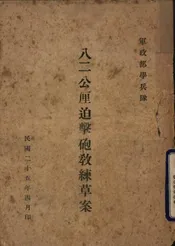 軍政部學兵隊
八二公厘迫擊砲教練草案
民國二十五年四月印